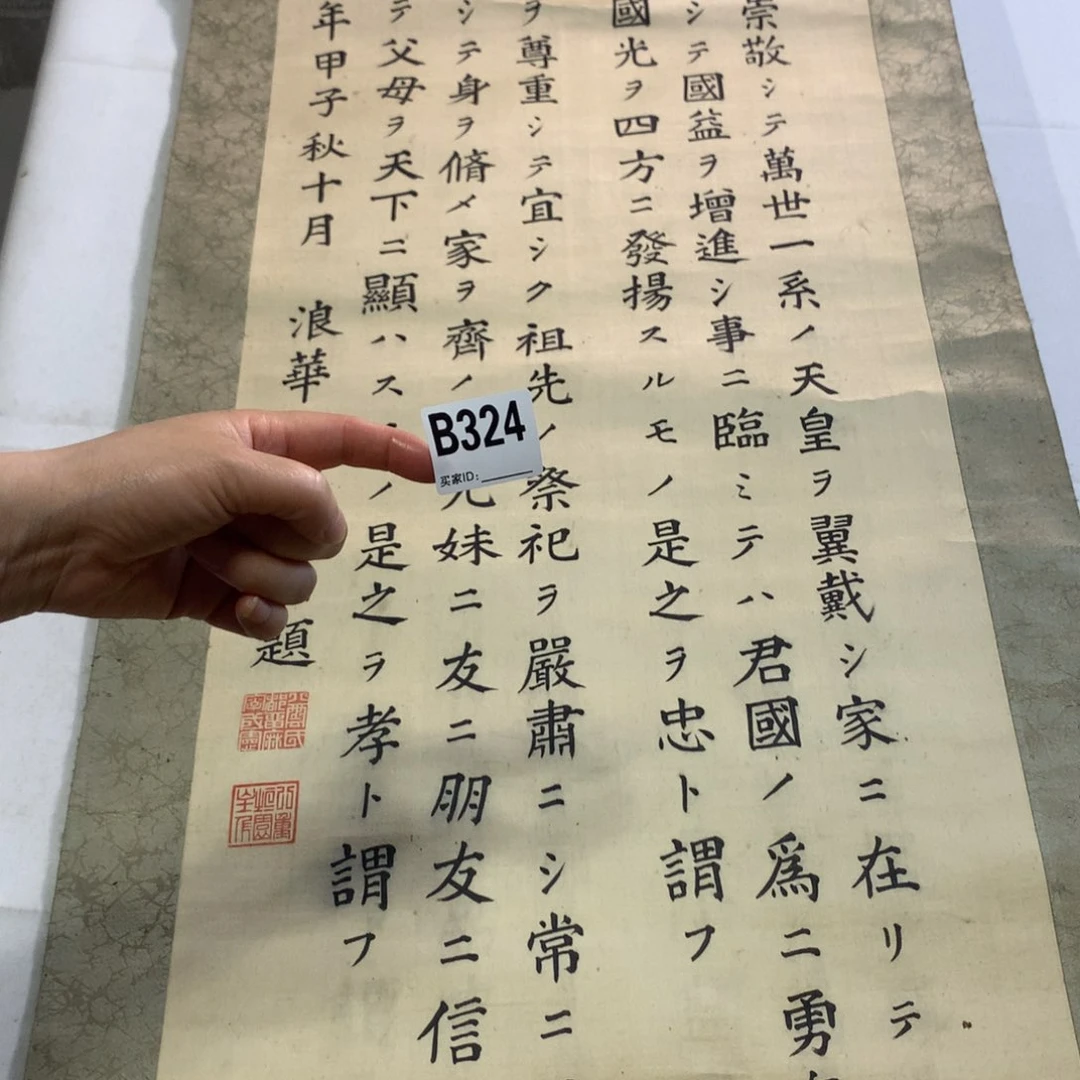 崇敬シテ萬世一系ノ天皇ヲ翼戴シ家ニ在リテ
シテ國益ヲ增進シ事ニ臨ミテハ君國ノ爲ニ勇
國光ヲ四方ニ發揚スルモノ是之ヲ忠ト謂フ
ヲ尊重シテ宜シク祖先ノ祭祀ヲ嚴肅ニシ常ニ
シテ身ヲ脩メ家ヲ齊ノ兄妹ニ友ニ朋友ニ信
テ父母ヲ天下ニ顯ハスノ是之ヲ孝ト謂フ
年甲子秋十月 浪華 題
B324
买家ID: